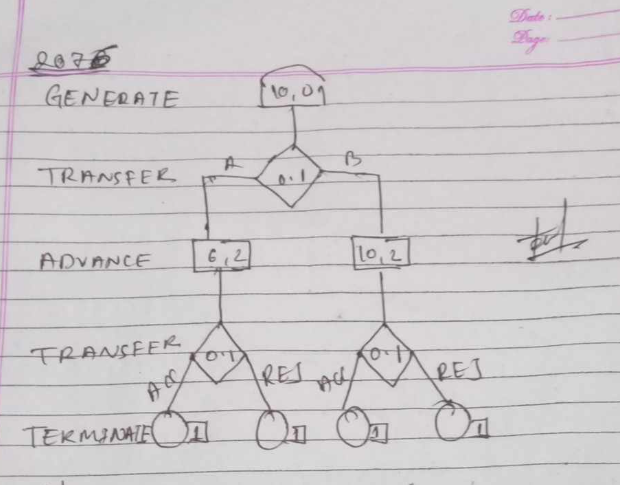 Date:
Page:
GENERATE 10,0
TRANSFER A 0.1 B
ADVANCE 6,2 10,2
TRANSFER 0.1 0.1
ACC REJ ACC REJ
TERMINATE 1 1 1 1